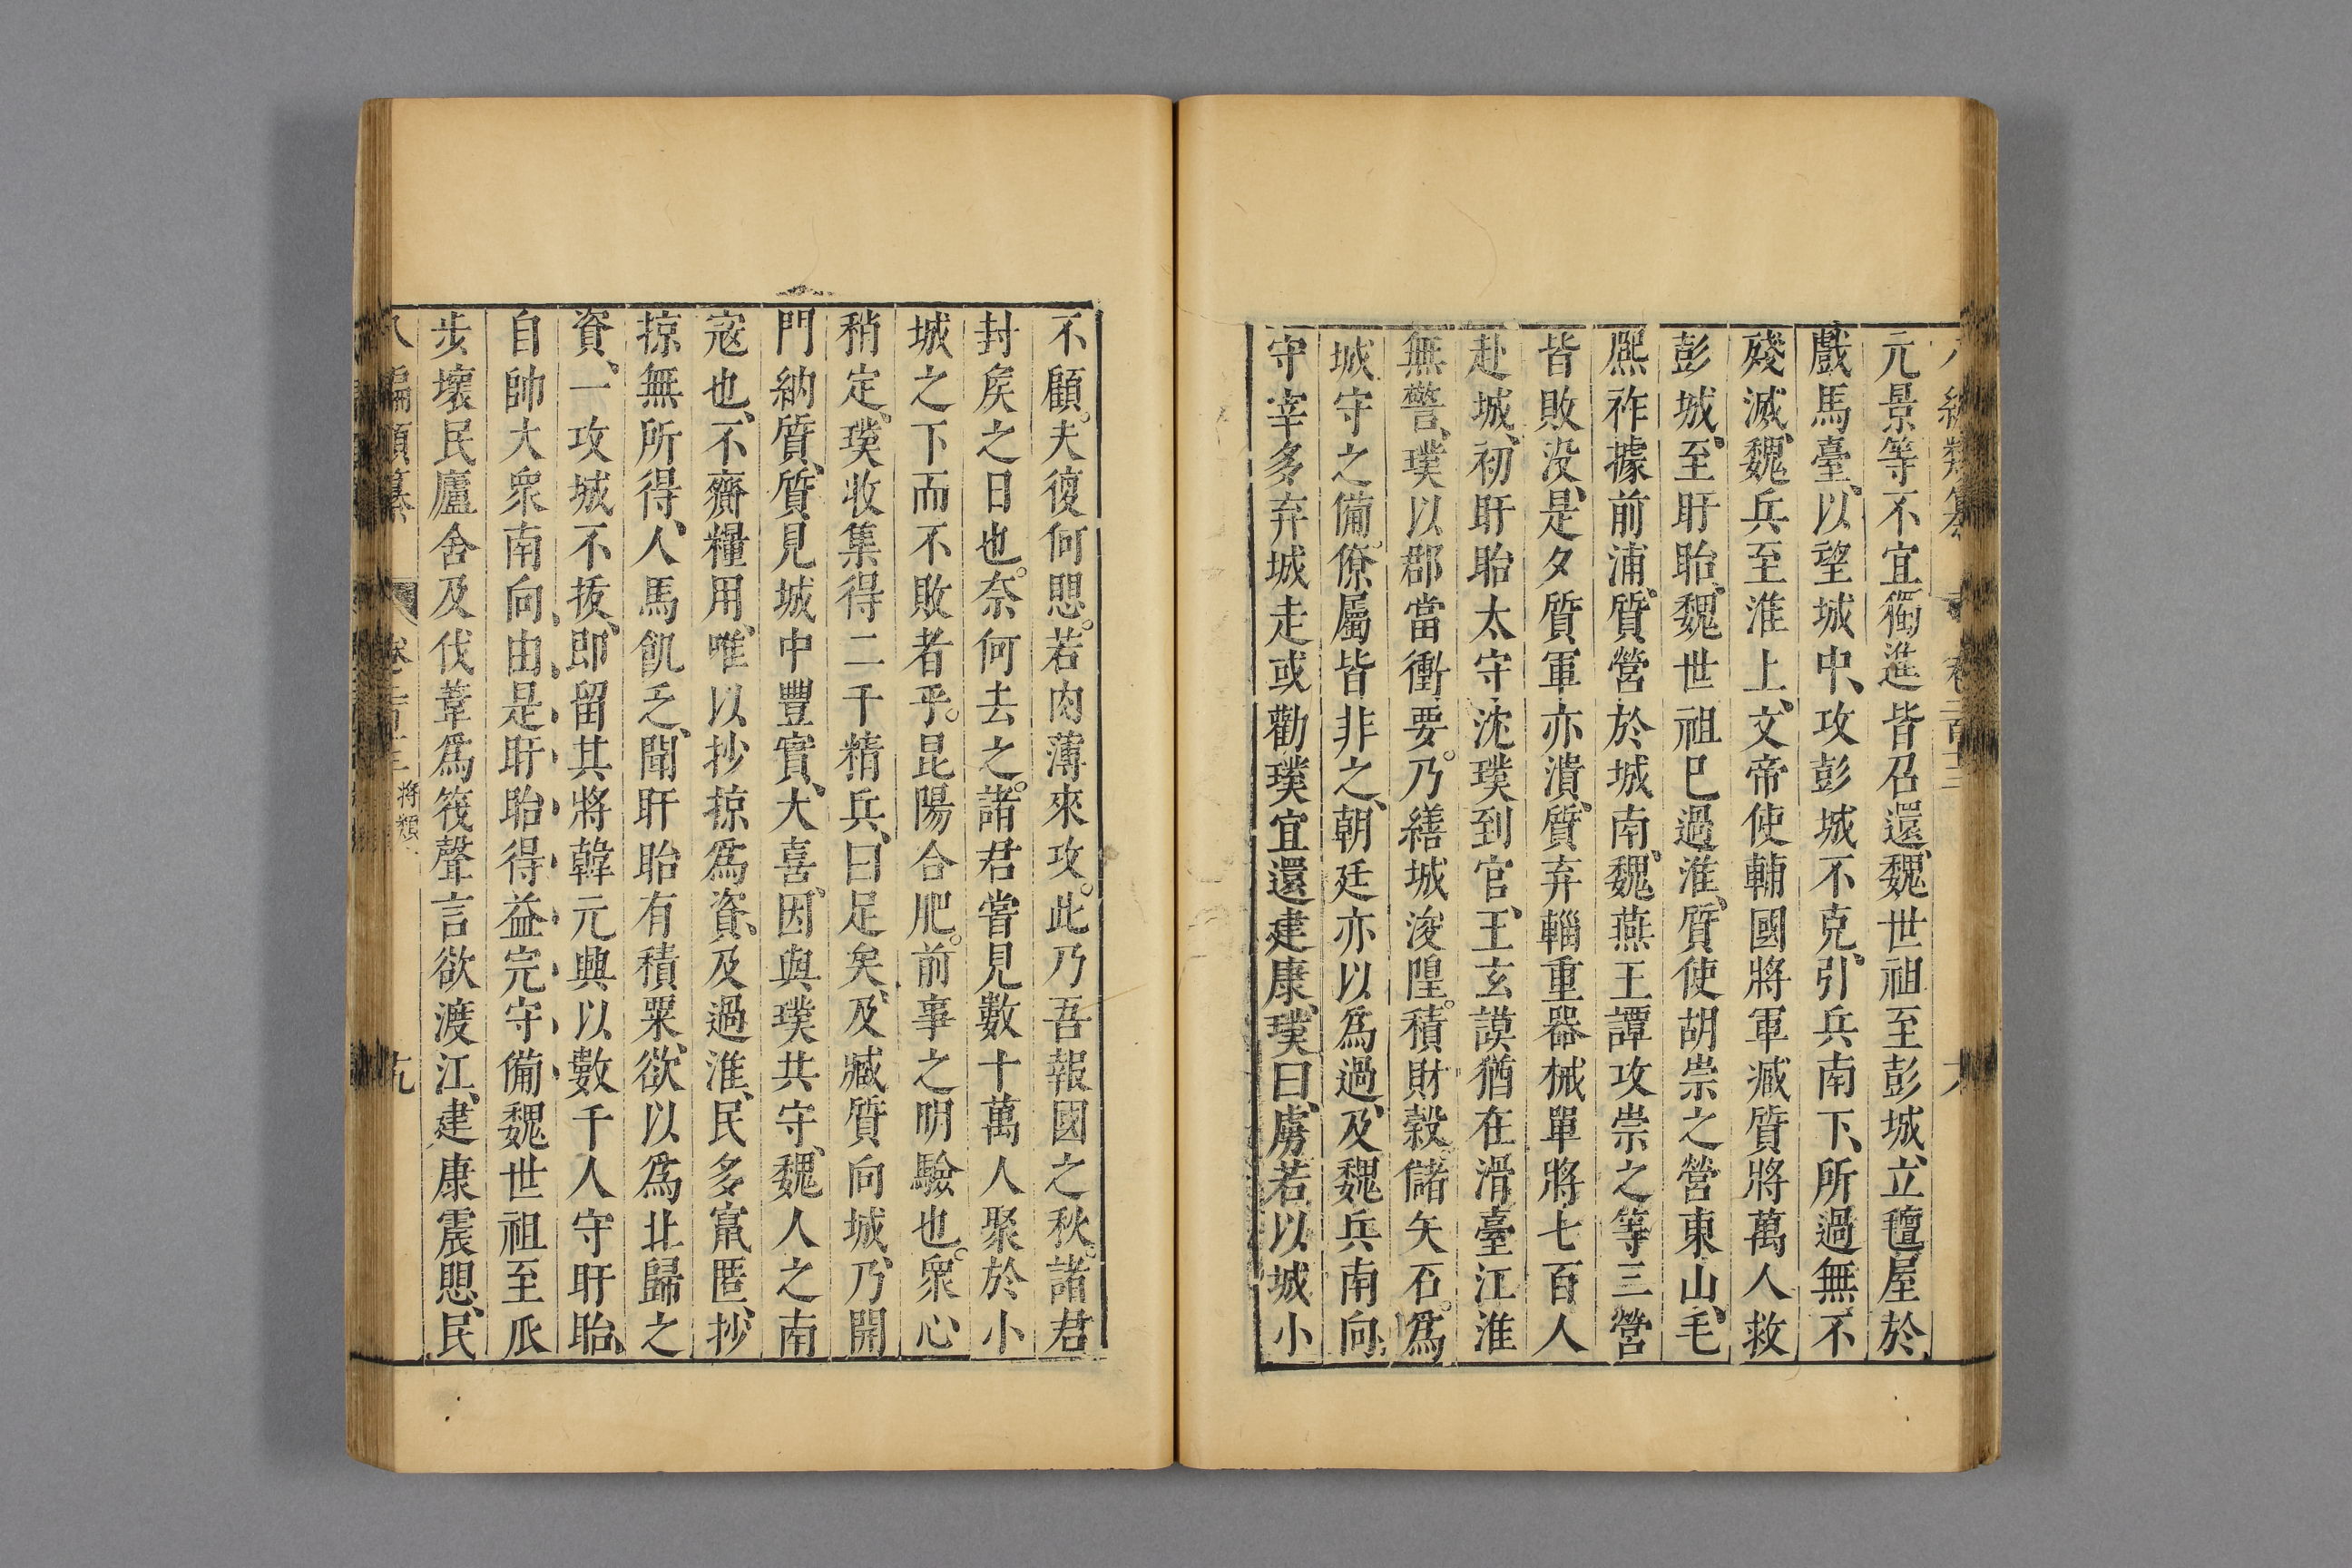 元景等不宜獨進皆召還、魏世祖至彭城、立氊屋於
戲馬臺、以望城中、攻彭城不克、引兵南下、所過無不
殘滅、魏兵至淮上、文帝使輔國將軍臧質將萬人救
彭城、至盱眙、魏世祖已過淮、質使胡崇之營東山、毛
熈祚據前浦、質營於城南、魏燕王譚攻崇之等三營
皆敗没、是夕質軍亦潰、質弃輜重器械單將七百人
赴城、初盱眙太守沈璞到官、王玄謨猶在滑臺江淮
無警、璞以郡當衝要。乃繕城浚隍。積財穀。儲矢石。爲
城守之備。僚屬皆非之、朝廷亦以爲過、及魏兵南向、
守宰多弃城走或勸璞宜還建康、璞曰、虜若以城小
不顧。夫復何思。若肉薄來攻。此乃吾報國之秋。諸君
封矦之日也。奈何去之。諸君嘗見數十萬人聚於小
城之下而不敗者乎。昆陽合肥。前事之明驗也。衆心
稍定、璞收集得二千精兵、曰足矣、及臧質向城、乃開
門納質、質見城中豐實、大喜、因與璞共守、魏人之南
寇也、不齎糧用、唯以抄掠爲資、及過淮、民多竄匿、抄
掠無所得、人馬飢乏、聞盱眙有積粟、欲以爲北歸之
資、一攻城不拔、即留其將韓元興以數千人守盱眙、
自帥大衆南向、由是盱眙得益完守備魏世祖至瓜
步壞民廬舍及伐葦爲筏聲言欲渡江、建康震思、民
編類纂 將類